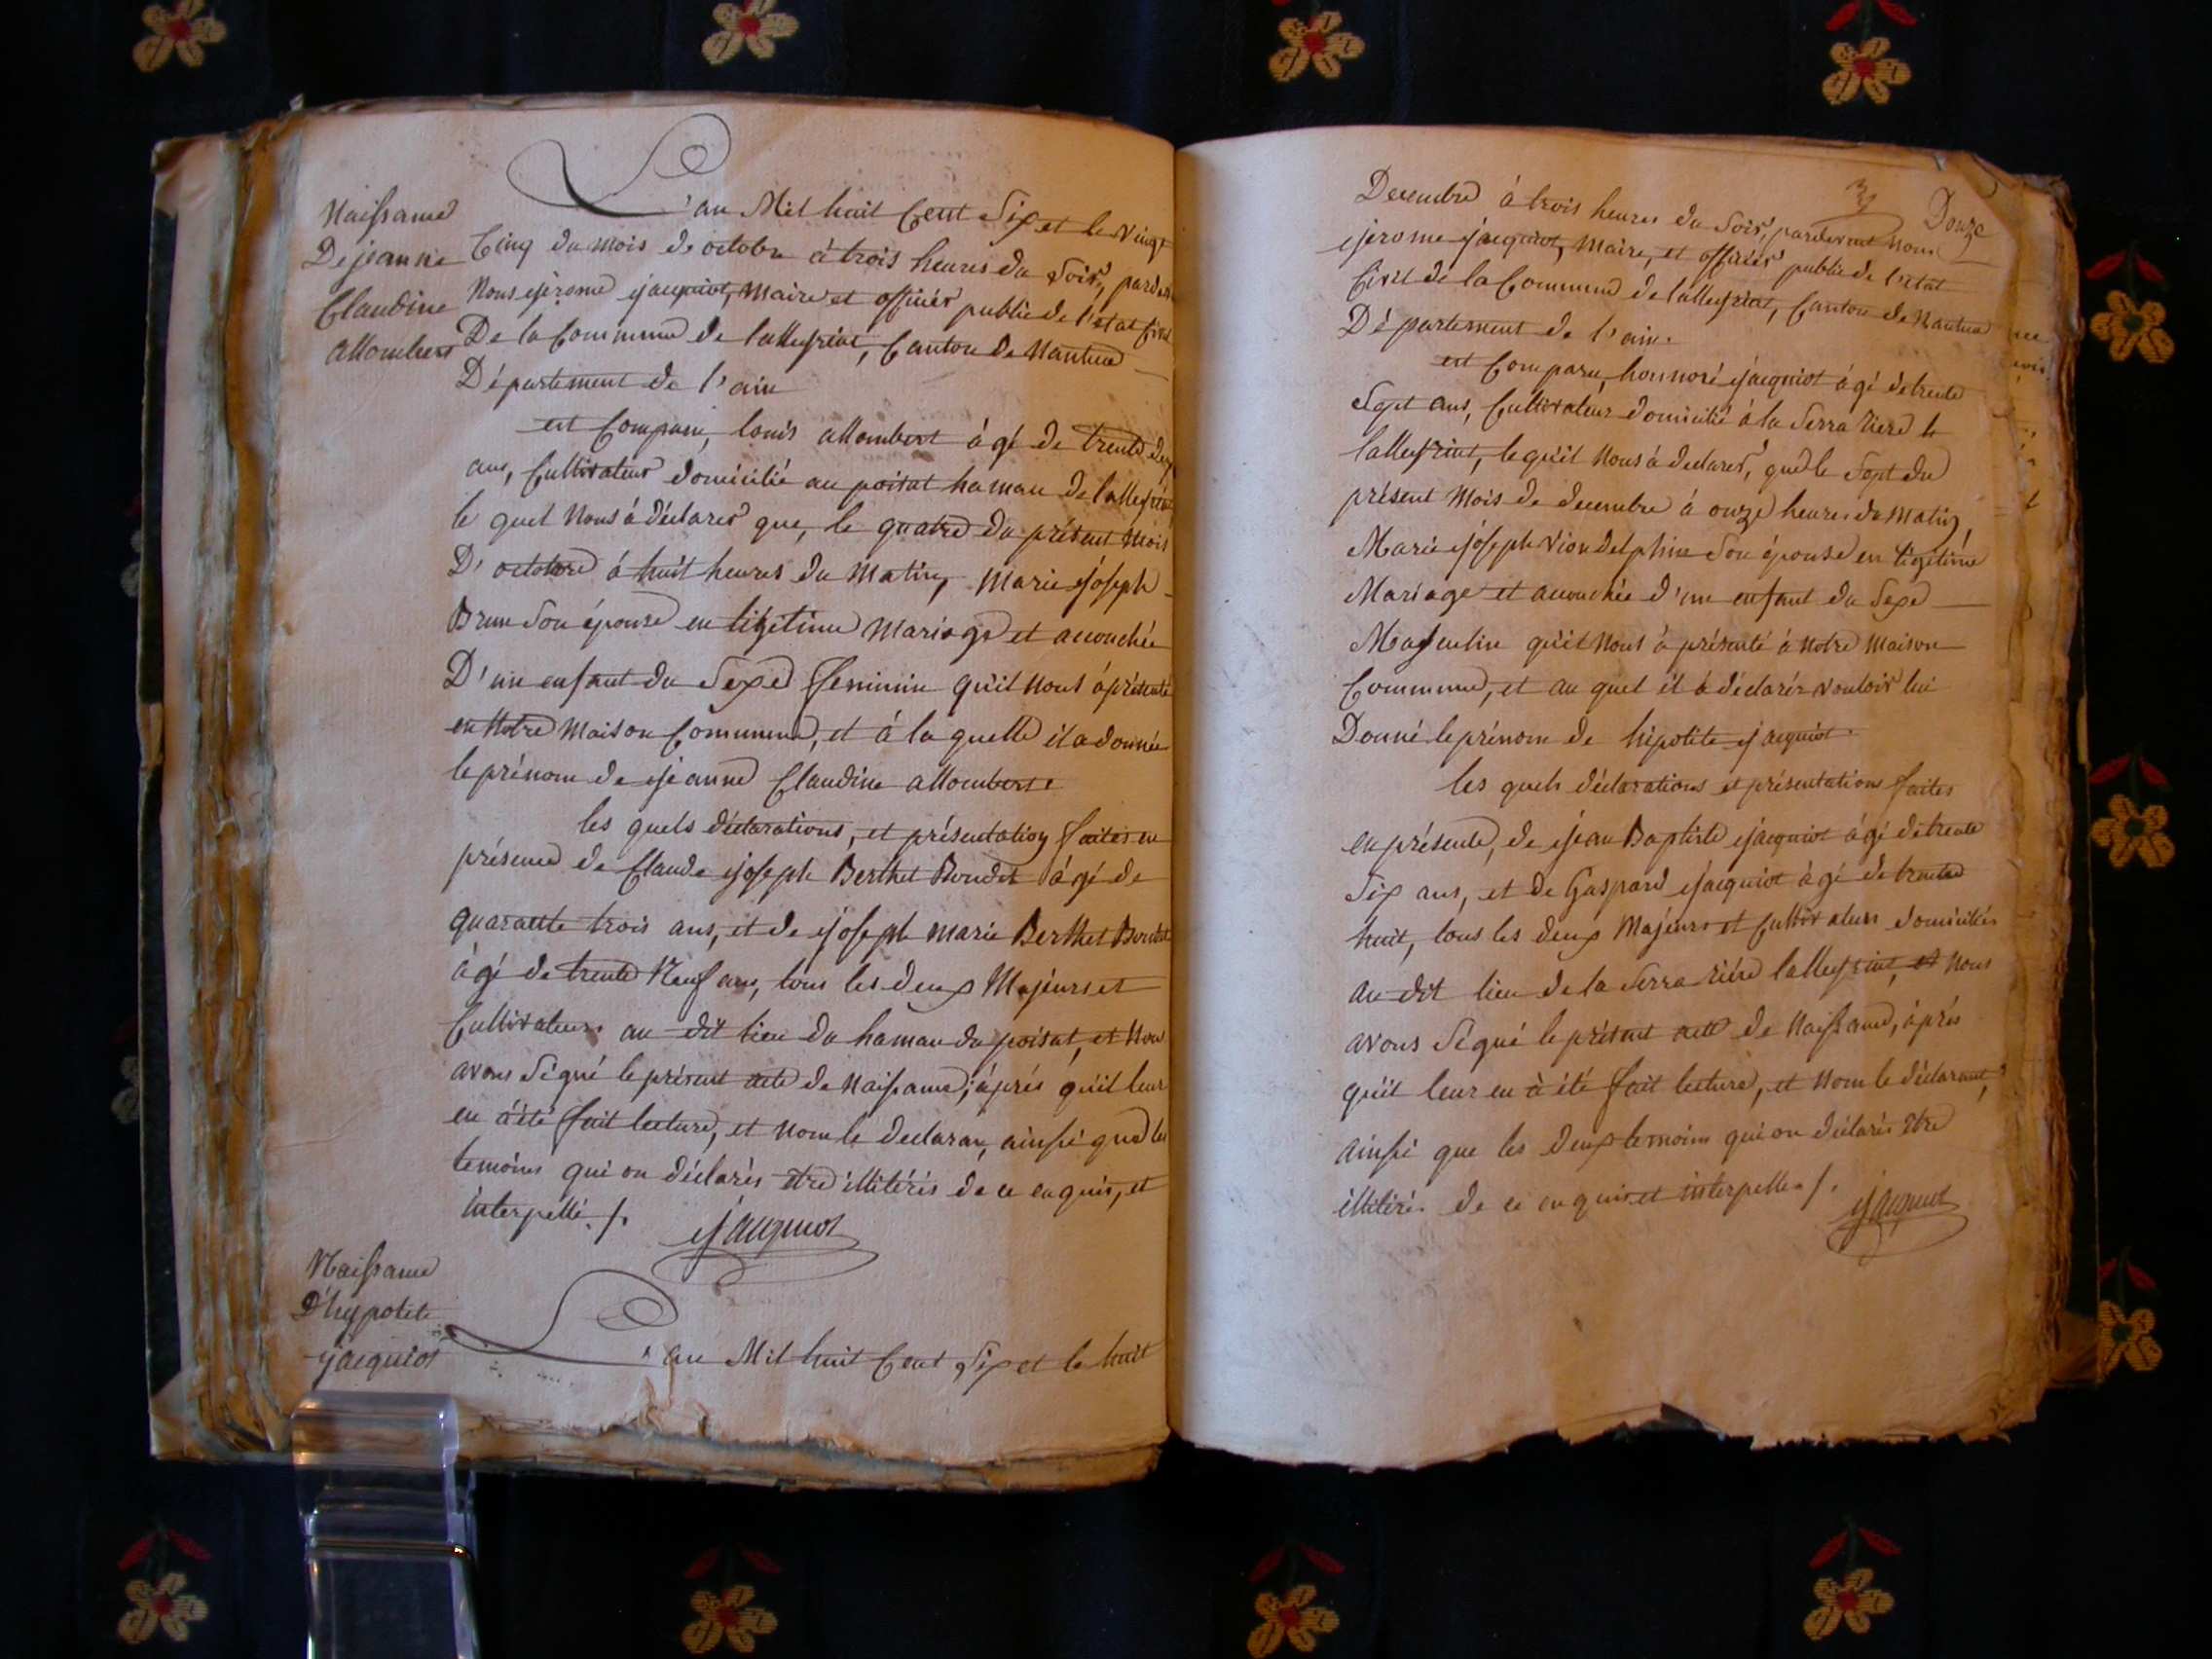 Naissance
De jeanne
Claudine
allombert
L'an Mil huit Cent Six et le vingt
Cinq du mois de octobre à trois heures du Soir, pardev
Nous jerome jacquiot, Maire et officier public de l'état Civil
De la Commune de lalleyriat, Canton de Nantua
Département de l'ain
est Comparu, louis allombert âgé de trente deux
ans, Cultivateur domicilié au poisat hamau de lalleyriat
le quel Nous à déclarer que, le quatre du présent mois
D'octobre à huit heures du Matin, Marie joseph
Brun Son épouse en ligitime Mariage et accouchée
D'un enfant du Sexe feminin qu'il nous à présenté
en Notre Maison Commune, et à la quelle il a donnée
le prénom de jeanne Claudine allombert.
les quels déclarations, et présentation faites en
présence de Claude joseph Berthet Bondet âgé de
quarante trois ans, et de joseph marie Berthet Bondet
âgé de trente Neuf ans, tous les deux Majeurs et
Cultivateurs au dit lieu du hamau du poisat, et Nous
avons Signé le présent acte de Naissance, àprés qu'il leur
en à été fait lecture, et Nom le declaran, ainsié que les
temoins qui on déclarés etre illitérés de ce enquis, et
interpellé ./.
jacquiot
Naissance
D'hypolite
jacquiot
L'an Mil huit Cent Six et le huit
Douze
Decembre à trois heures du Soir, pardevant nous
jerome jacquiot, Maire, et officier public de l'état
Civil de la Commune de lalleyriat, Canton de Nantua
Département de l'ain.
est Comparu, honnoré jacquiot âgé de trente
Sept ans, Cultivateur domicilié à la Serra riere
lalleyriat, le quil Nous à declarer, que le Sept du
présent Mois de decembre à onze heures du Matin,
Marie joseph viondelphin Son épouse en ligitime
Mariage et accouchée d'un enfant du Sexe
Masculin qu'il Nous à présenté à Notre Maison
Commune, et au quel il à déclarér vouloir lui
Donné le prénom de hipolite jacquiot.
les quels déclarations et présentations faites
en présente, de jean Baptiste jacquiot âgé de trente
Six ans, et de Gaspard jacquiot âgé de trente
huit, tous les deux Majeurs et Cultivateurs domiciliés
au dit lieu de la Serra riére lalleyriat, et Nous
avons Signé le présent acte de Naissance, àprés
qu'il leur en à été fait lecture, et Nom le déclarant,
ainsié que les deux temoins qui on déclarés etre
illitérés de ce enquis et interpellés ./.
jacquiot